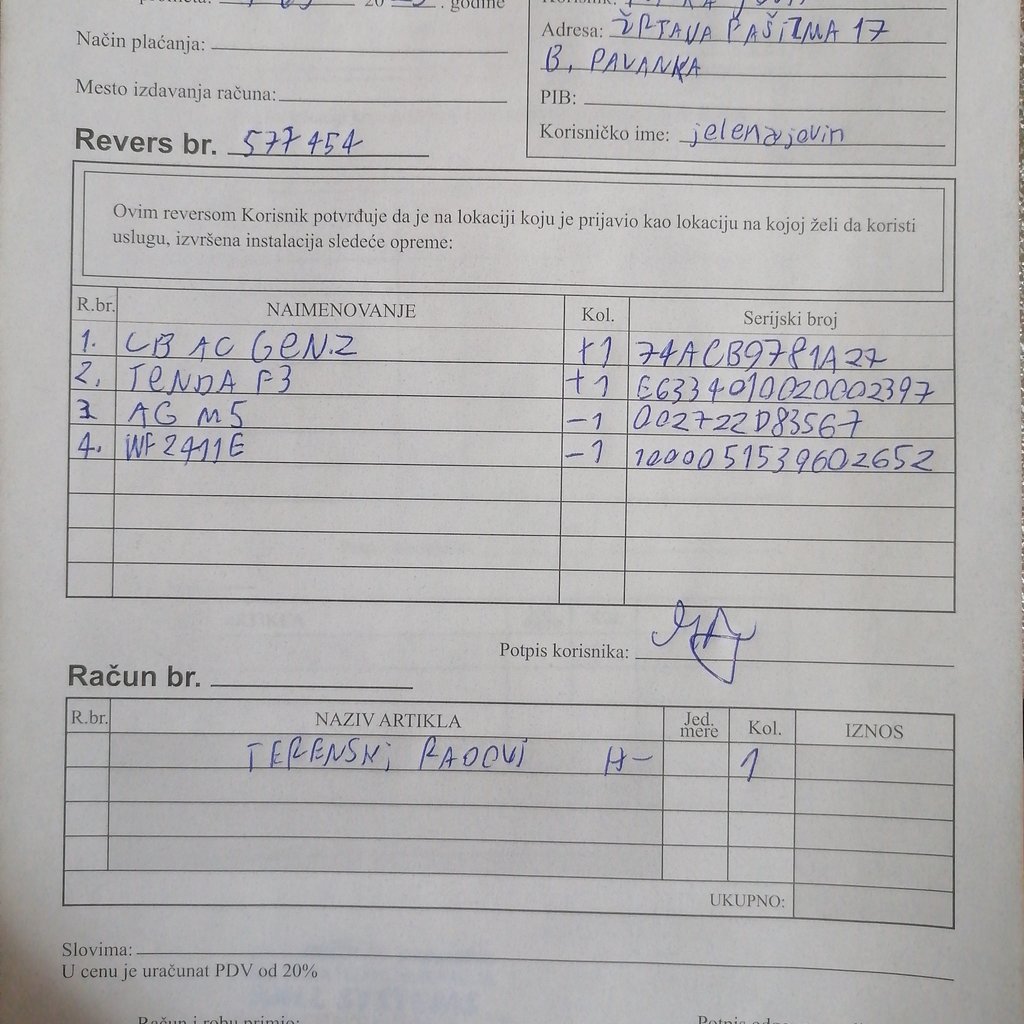 20 . godine
Način plaćanja:
Mesto izdavanja računa:
Revers br. 577454
Adresa: ŽRTAVA FAŠIZMA 17
B. PAVANKA
PIB:
Korisničko ime: jelenajovin
Ovim reversom Korisnik potvrđuje da je na lokaciji koju je prijavio kao lokaciju na kojoj želi da koristi
uslugu, izvršena instalacija sledeće opreme:
R.br. NAIMENOVANJE Kol. Serijski broj
1. LB AC GEN.2 +1 74ACB9781A27
2. TENDA F3 +1 E6334010020002397
3 AG M5 -1 002722D83567
4. WF2411E -1 1000051539602652
Potpis korisnika:
Račun br.
R.br. NAZIV ARTIKLA Jed. mere Kol. IZNOS
TERENSKi RADOVI H- 1
UKUPNO:
Slovima:
U cenu je uračunat PDV od 20%
Račun i robu primio: